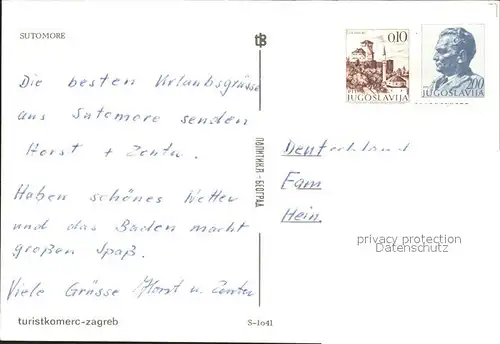 SUTOMORE
Die besten Urlaubsgrüsse
aus Sutomore senden
Horst +
Haben schönes Wetter
und das Baden macht
großen Spaß.
Viele Grüsse Horst u.
turistkomerc-zagreb
S-1041
ПОЛИТИКА - БЕОГРАД
0,10
JUGOSLAVIJA
2,00
JUGOSLAVIJA
Deutschland
Fam
Hein.
privacy protection
Datenschutz